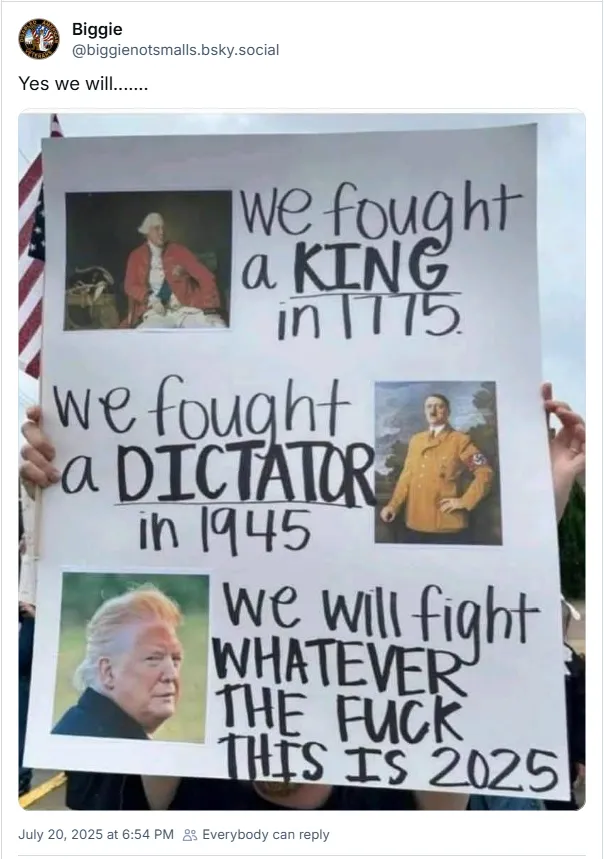 Biggie
@biggienotsmalls.bsky.social
Yes we will.......
We fought
a KING
in 1775.
We fought
a DICTATOR
in 1945
We will fight
WHATEVER
THE FUCK
THIS IS 2025
July 20, 2025 at 6:54 PM Everybody can reply